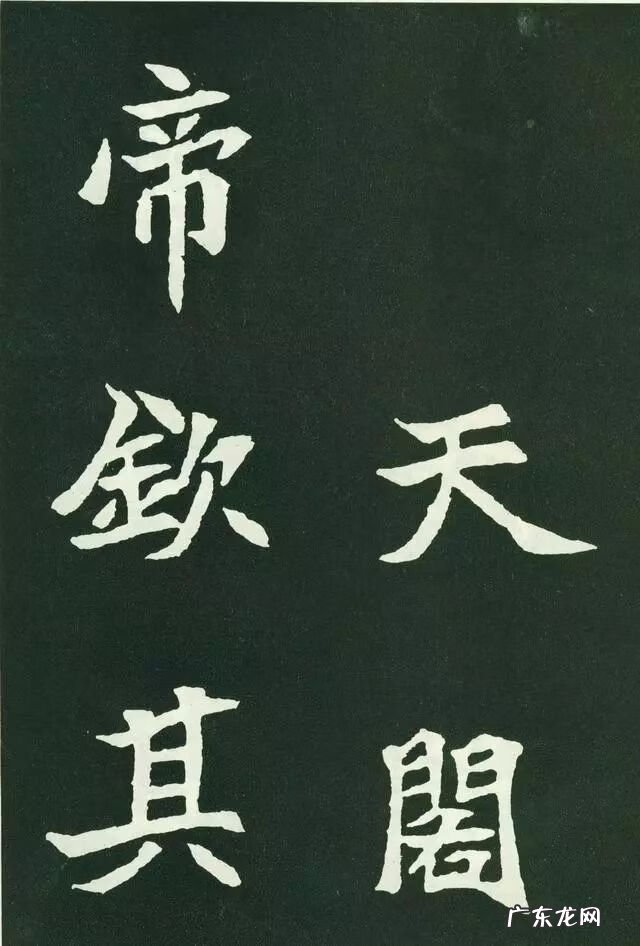 天閣
帝欽其
广东龙网